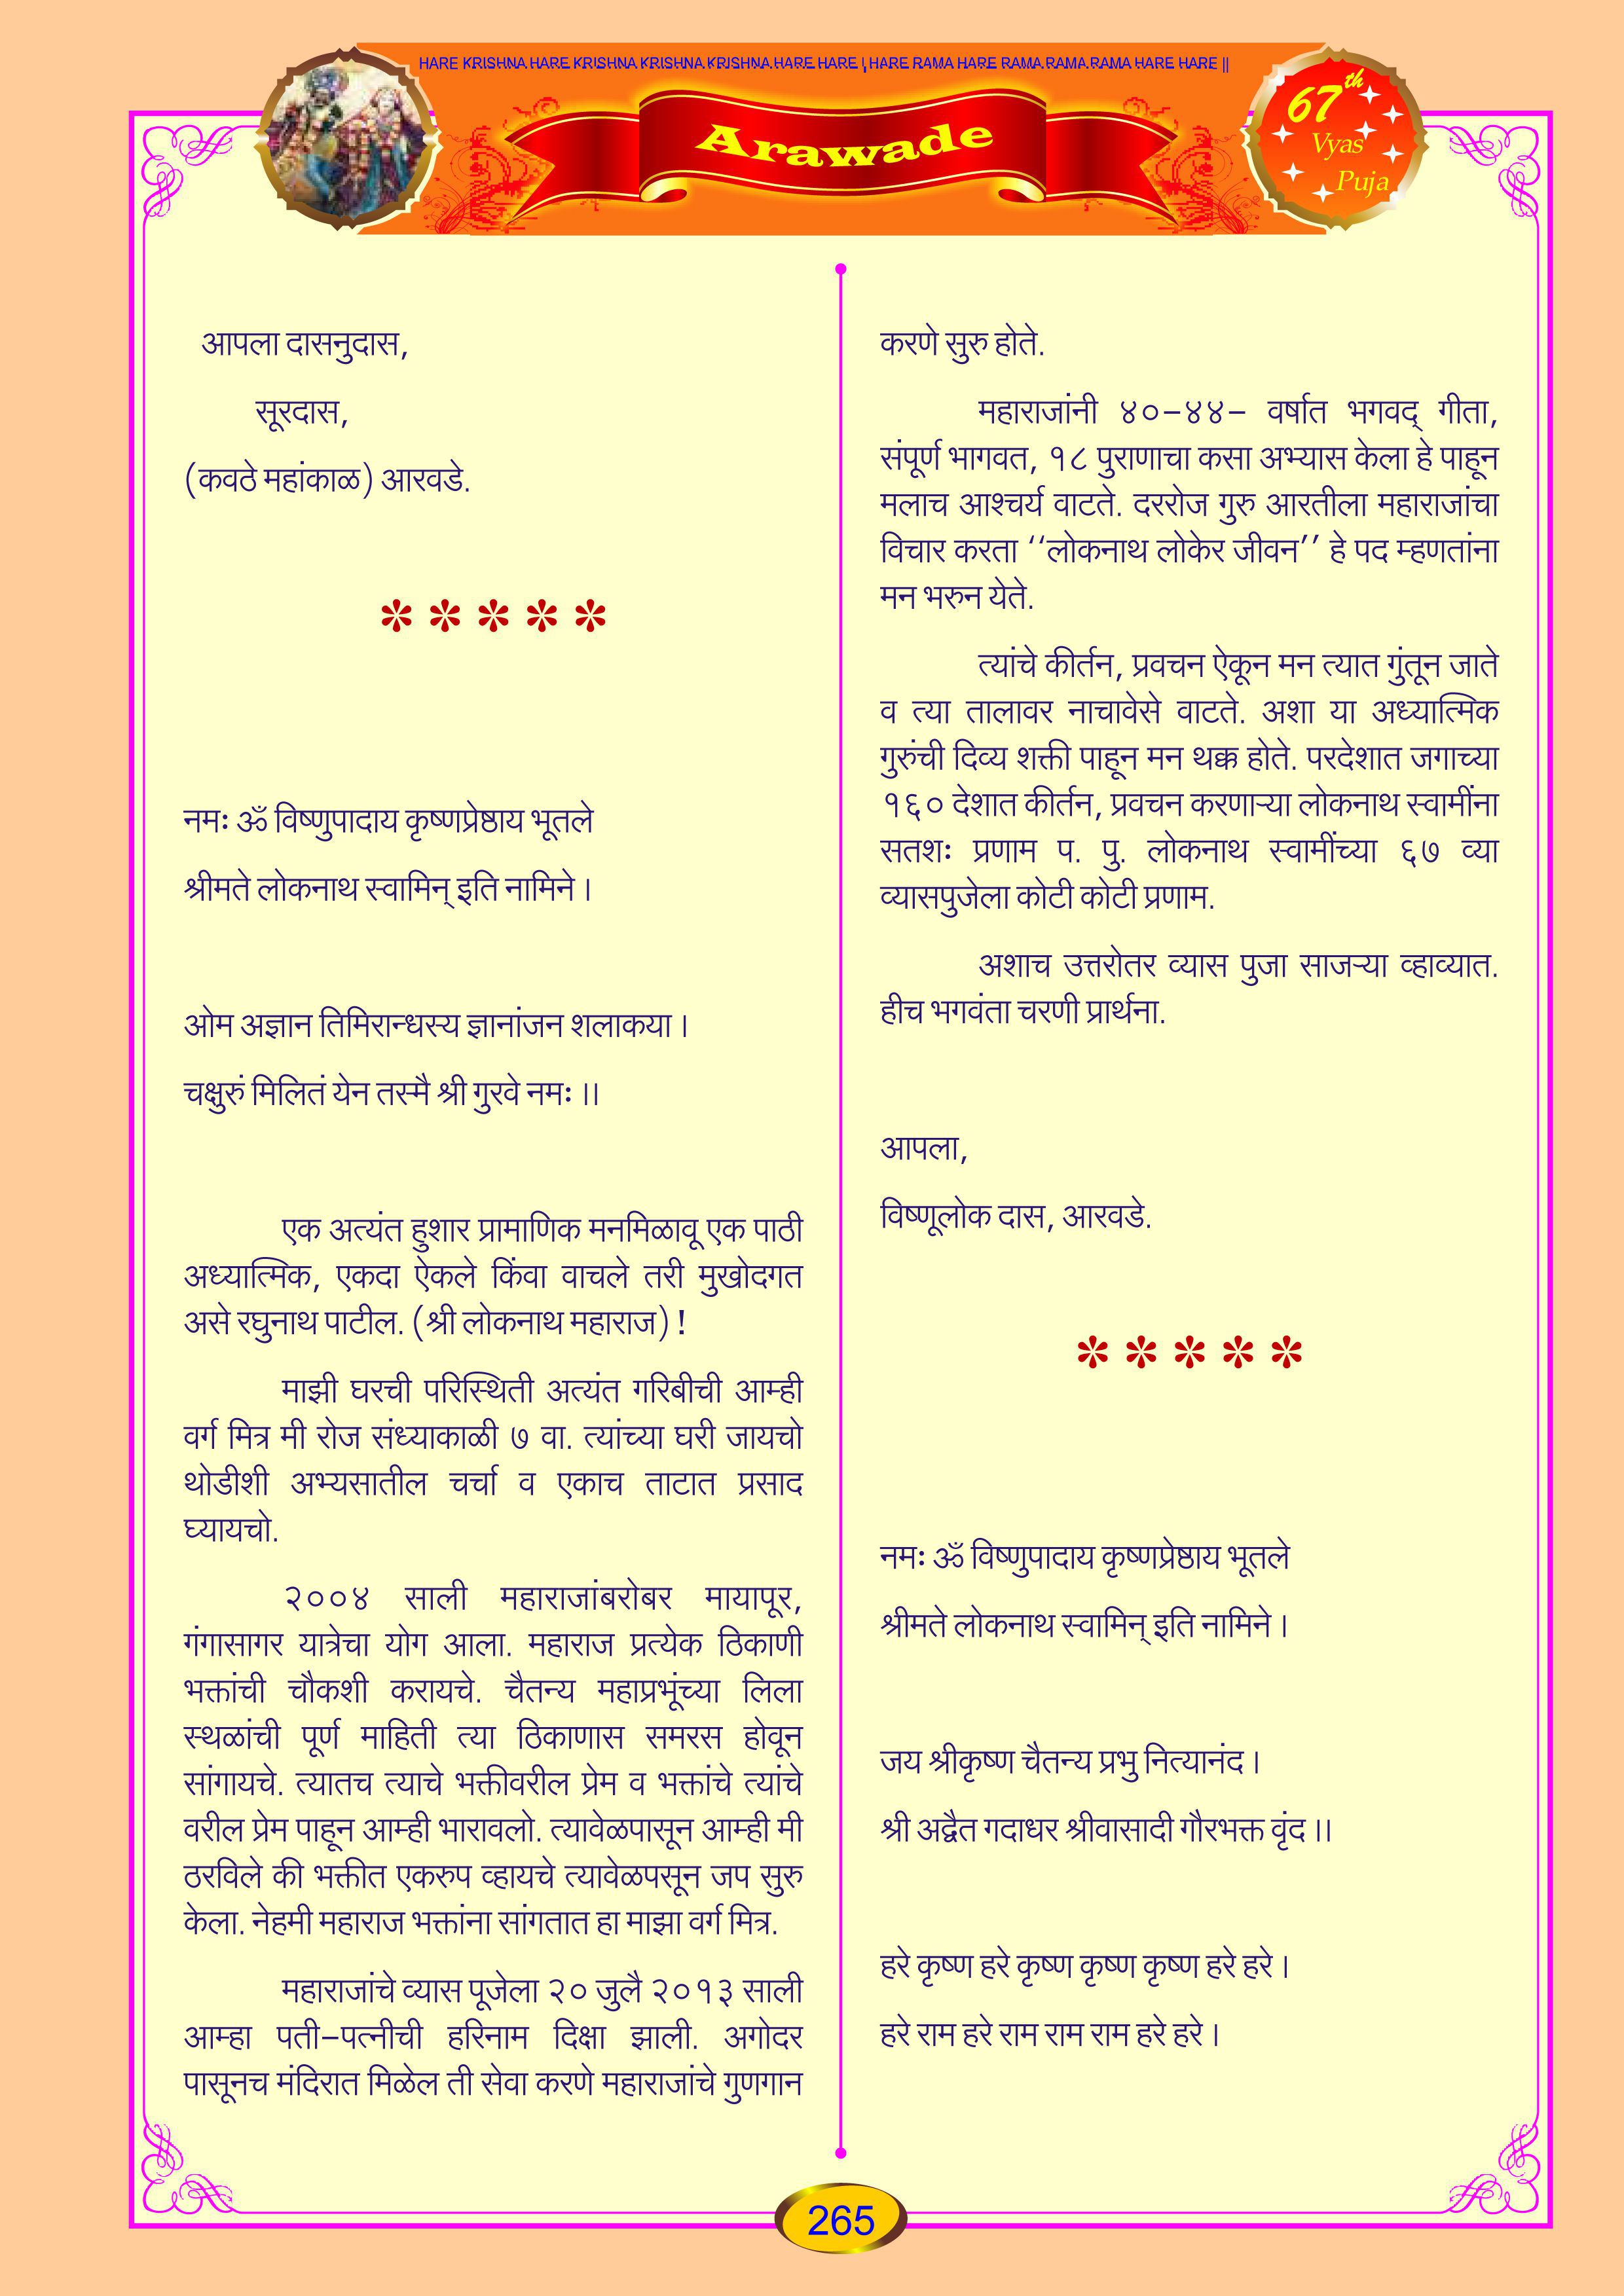 HARE KRISHNA HARE KRISHNA KRISHNA KRISHNA HARE HARE | HARE RAMA HARE RAMA RAMA RAMA HARE HARE ||
Arawade
67th
Vyas
Puja
आपला दासनुदास,
सूरदास,
(कवठे महांकाळ) आरवडे.
* * * * *
नमः ॐ विष्णुपादाय कृष्णप्रेष्ठाय भूतले
श्रीमते लोकनाथ स्वामिन् इति नामिने ।
ओम अज्ञान तिमिरान्धस्य ज्ञानांजन शलाकया ।
चक्षुरुं मिलितं येन तस्मै श्री गुरवे नमः ।।
एक अत्यंत हुशार प्रामाणिक मनमिळावू एक पाठी
अध्यात्मिक, एकदा ऐकले किंवा वाचले तरी मुखोदगत
असे रघुनाथ पाटील. (श्री लोकनाथ महाराज) !
माझी घरची परिस्थिती अत्यंत गरिबीची आम्ही
वर्ग मित्र मी रोज संध्याकाळी ७ वा. त्यांच्या घरी जायचो
थोडीशी अभ्यसातील चर्चा व एकाच ताटात प्रसाद
घ्यायचो.
२००४ साली महाराजांबरोबर मायापूर,
गंगासागर यात्रेचा योग आला. महाराज प्रत्येक ठिकाणी
भक्तांची चौकशी करायचे. चैतन्य महाप्रभूंच्या लिला
स्थळांची पूर्ण माहिती त्या ठिकाणास समरस होवून
सांगायचे. त्यातच त्याचे भक्तीवरील प्रेम व भक्तांचे त्यांचे
वरील प्रेम पाहून आम्ही भारावलो. त्यावेळपासून आम्ही मी
ठरविले की भक्तीत एकरुप व्हायचे त्यावेळपसून जप सुरु
केला. नेहमी महाराज भक्तांना सांगतात हा माझा वर्ग मित्र.
महाराजांचे व्यास पूजेला २० जुलै २०१३ साली
आम्हा पती-पत्नीची हरिनाम दिक्षा झाली. अगोदर
पासूनच मंदिरात मिळेल ती सेवा करणे महाराजांचे गुणगान
करणे सुरु होते.
महाराजांनी ४०-४४- वर्षात भगवद् गीता,
संपूर्ण भागवत, १८ पुराणाचा कसा अभ्यास केला हे पाहून
मलाच आश्चर्य वाटते. दररोज गुरु आरतीला महाराजांचा
विचार करता ‘‘लोकनाथ लोकेर जीवन’’ हे पद म्हणतांना
मन भरुन येते.
त्यांचे कीर्तन, प्रवचन ऐकून मन त्यात गुंतून जाते
व त्या तालावर नाचावेसे वाटते. अशा या अध्यात्मिक
गुरुंची दिव्य शक्ती पाहून मन थक्क होते. परदेशात जगाच्या
१६० देशात कीर्तन, प्रवचन करणाऱ्या लोकनाथ स्वामींना
सतशः प्रणाम प. पु. लोकनाथ स्वामींच्या ६७ व्या
व्यासपुजेला कोटी कोटी प्रणाम.
अशाच उत्तरोतर व्यास पुजा साजऱ्या व्हाव्यात.
हीच भगवंता चरणी प्रार्थना.
आपला,
विष्णूलोक दास, आरवडे.
* * * * *
नमः ॐ विष्णुपादाय कृष्णप्रेष्ठाय भूतले
श्रीमते लोकनाथ स्वामिन् इति नामिने ।
जय श्रीकृष्ण चैतन्य प्रभु नित्यानंद ।
श्री अद्वैत गदाधर श्रीवासादी गौरभक्त वृंद ।।
हरे कृष्ण हरे कृष्ण कृष्ण कृष्ण हरे हरे ।
हरे राम हरे राम राम राम हरे हरे ।
265